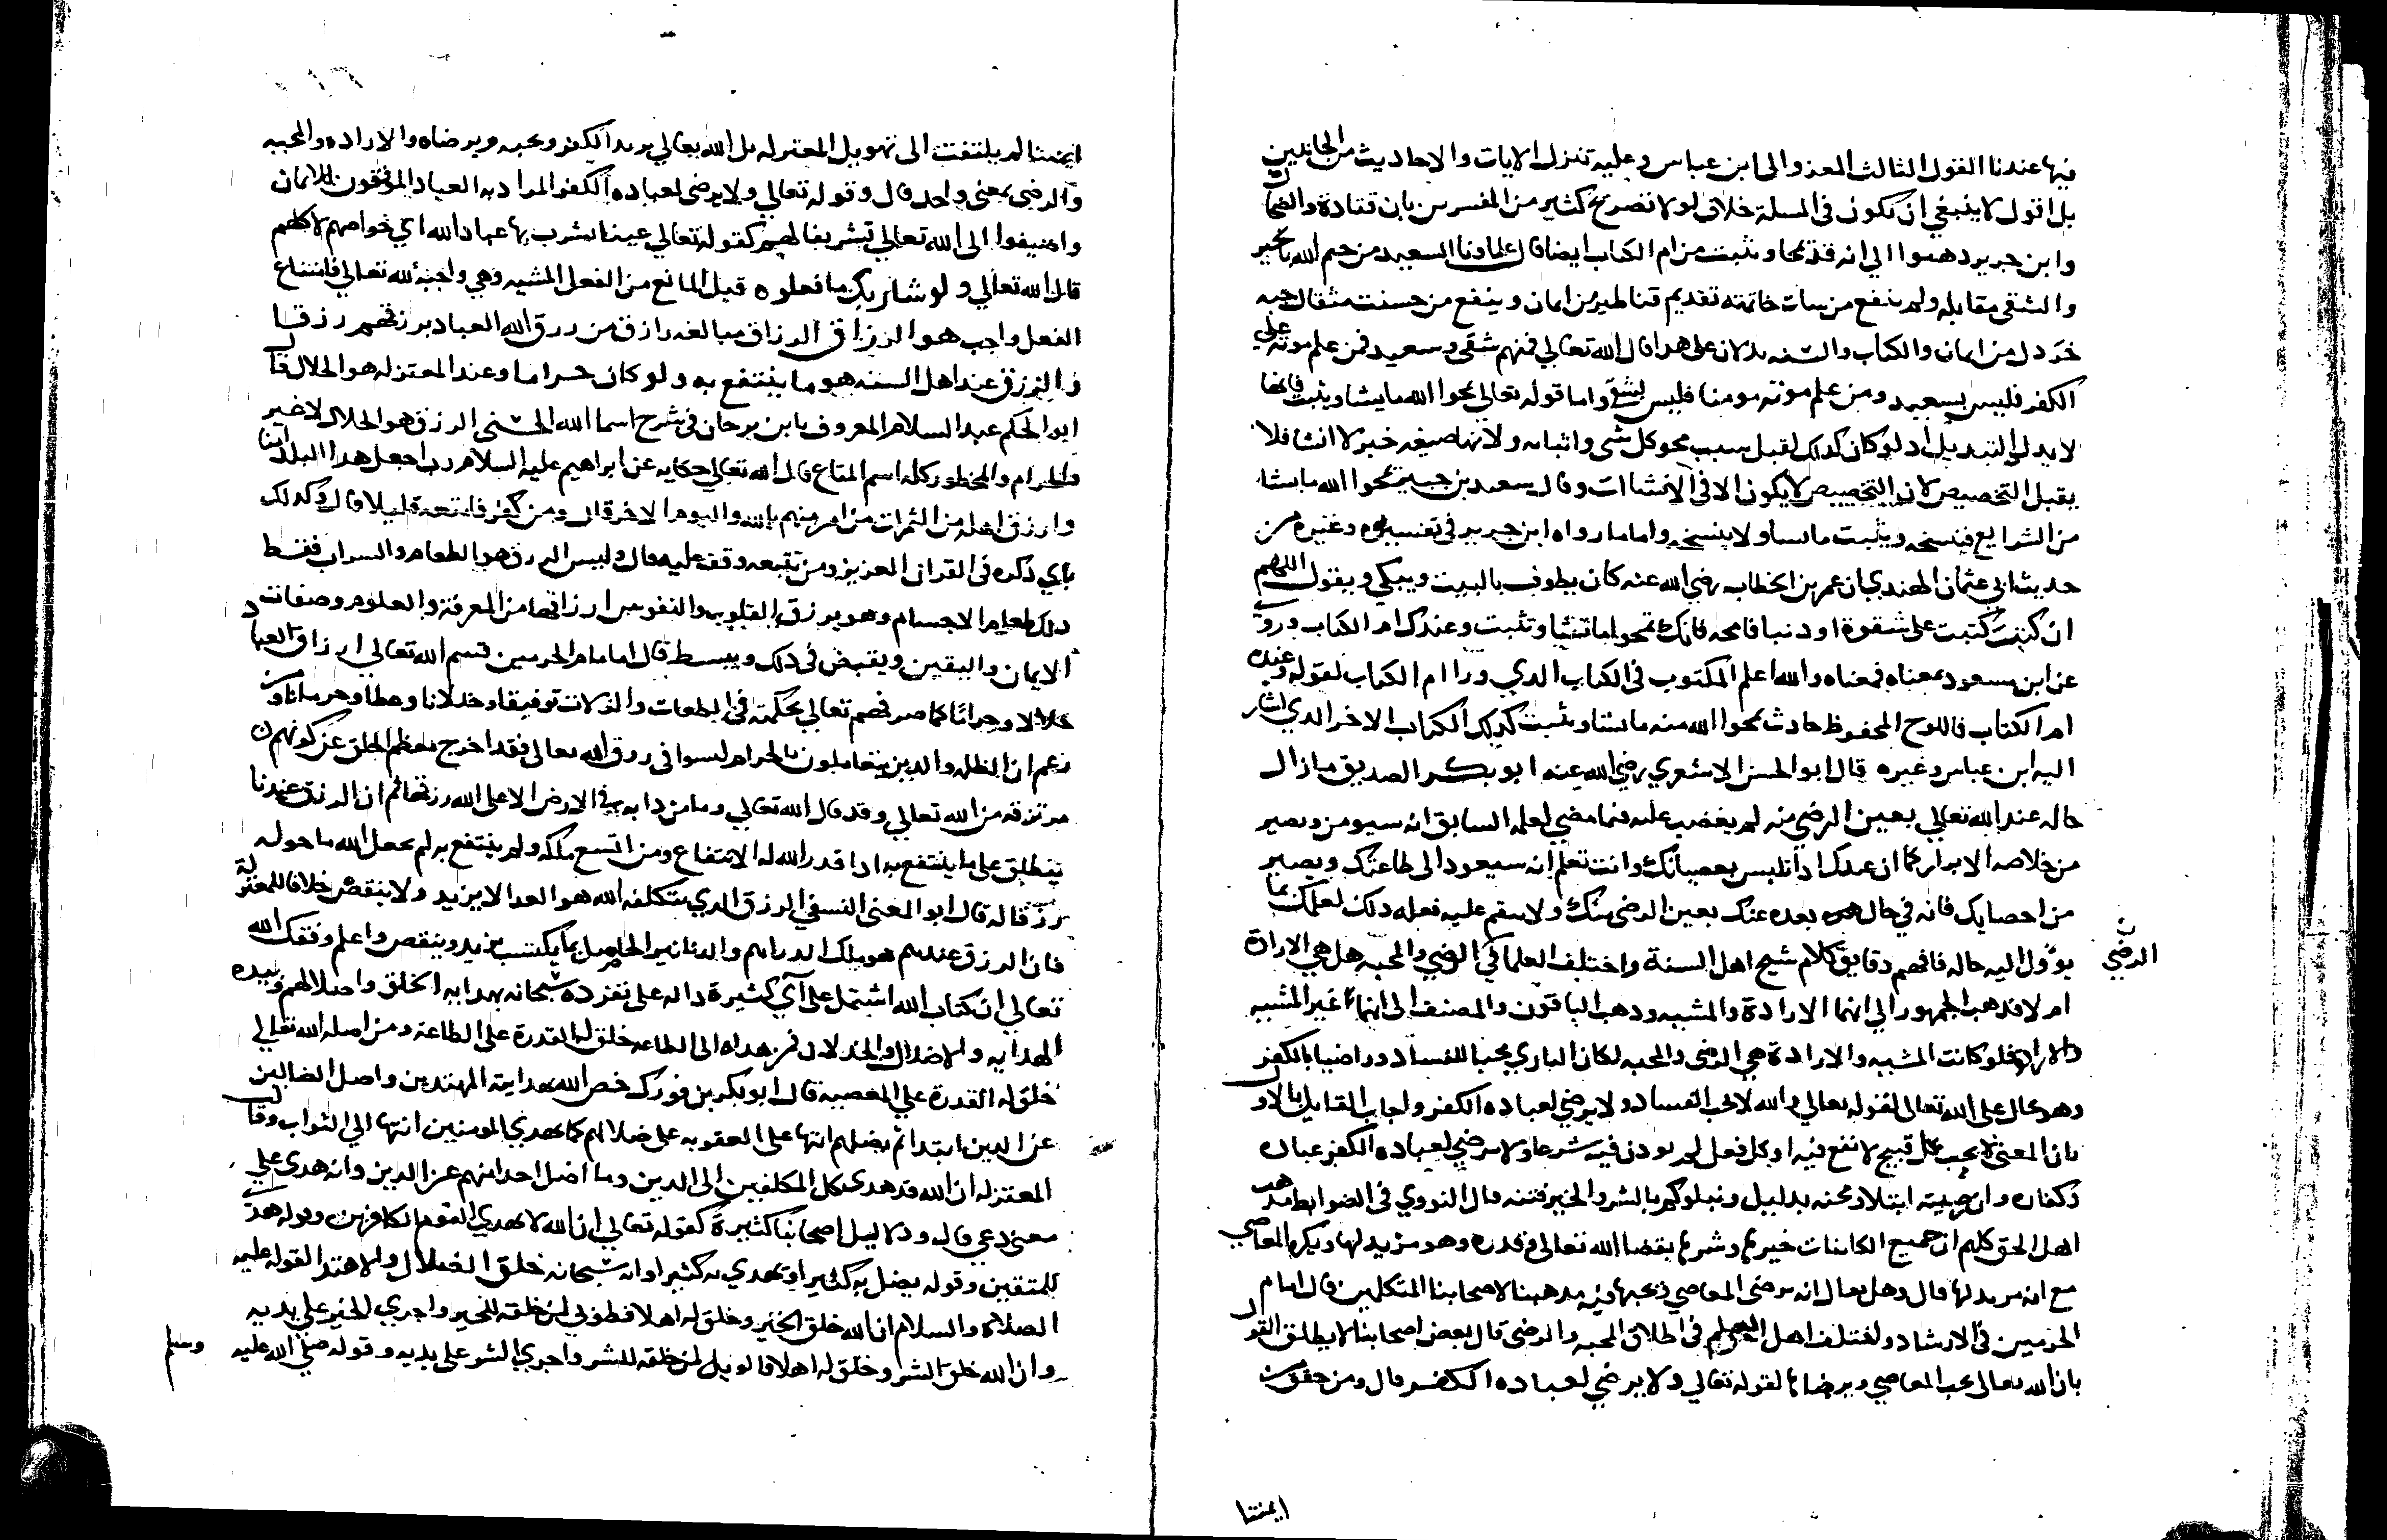 فيها عندنا القول الثالث المعزو الى ابن عباس وعليه تتنزل الايات والاحاديث من الجانبين
بل اقول لا ينبغي ان يكون في المسلة خلاف لولا تصريح كثير من المفسرين بان قتادة والضحاك
وابن جرير ذهبوا الي انه قد يمحا ويثبت من ام الكتاب ايضا قال علماونا السعيد من ختم الله بخير
والشقي مقابله ولم ينفع من سات خاتمته تقديم قناطير من ايمان وينفع من حسنت مثقال حبه
خردل من ايمان والكتاب والسنه يدلان على هدا قال الله تعالي فمنهم شقي وسعيد فمن علم موته علي
الكفر فليس بسعيد ومن علم موته مومنا فليس بشقي واما قوله تعالي يمحوا الله ما يشا ويثبت فانها
لا يدل التبديل اد لو كان كدلك لقبل سبب محو كل شى واثباته ولانها صيغه خبر لا انشا فلا
يقبل التخصيص لان التخصيص لا يكون الا في الانشاات وقال سعيد بن جبير يمحوا الله ما يشا
من الشرايع فينسخه ويثبت ما يشا ولا ينسخه واما ما رواه ابن جرير في تفسيره وغيره من
حديث ابي عثمان الهندي ان عمر بن الخطاب رضي الله عنه كان يطوف بالبيت ويبكي ويقول اللهم
ان كنت كتبت على شقوة او دنبا فامحه فانك تمحوا ما تشا وتثبت وعندك ام الكتاب وروي
عن ابن مسعود بمعناه فمعناه والله اعلم المكتوب في الكتاب الدي ورا ام الكتاب لقوله وعنده
ام الكتاب فاللوح المحفوظ حادث يمحوا الله منه ما يشا ويثبت كدلك الكتاب الاخر الدي اشار
اليه ابن عباس وغيره قال ابو الحسن الاشعري رضي الله عنه ابو بكر الصديق ما زال
حاله عند الله تعالي بعين الرضى منه لم يغضب عليه فيما مضي لعلمه السابق انه سيومن ويصير
من خلاصه الابرار كما ان عبدك ادا تلبس بعصيانك وانت تعلم انه سيعود الى طاعتك ويصير
من احصابك فانه في حال بعده عنك بعين الرضى منك ولا ينقم عليه فعله دلك لعلمك بما
يؤول اليه حاله فافهم دقايق كلام شيخ اهل السنة واختلف العلما في الرضي والمحبه هل هي الارادة
الرضي
ام لا فدهب الجمهور الي انهما الارادة والمشيه ودهب الباقون والمصنف الى انهما غير المشيه
والارادة فلو كانت المشيه والارادة هي الرضى والمحبه لكان الباري محبا للفساد وراضيا بالكفر
وهو محال على الله تعالى لقوله تعالي والله لا يحب الفساد ولا يرضي لعباده الكفر واجاب القايل بالاول
بان المعنى لا يحب كل قبيح لا نفع فيه او كل فعل لم يودن فيه شرعا ولا يرضي لعباده الكفر عباده
وان رضيته ابتلاء ومحنه بدليل ونبلوكم بالشر والخير فتنه قال النووي في الضوابط مدهب
اهل الحق كلهم ان جميع الكاينات خيرها وشرها بقضا الله تعالي وقدره وهو مريد لها ويكره المعاصي
مع انه مريد لها قال وهل يقال انه يرضى المعاصي ويحبها فيه مدهبنا لاصحابنا المتكلمين قال امام
الحرمين في الارشاد واختلف اهل العلم في اطلاق المحبه والرضى قال بعض اصحابنا لا يطلق القول
بان الله تعالي يحب المعاصي ويرضاها لقوله تعالي ولا يرضي لعباده الكفر قال ومن حقق من
ايمتنا
ايمتنا لم يلتفت الى تهويل المعتزله بل الله تعالي يريد الكفر ويحبه ويرضاه والاراده والمحبه
والرضى بمعنى واحد قال وقوله تعالي ولا يرضى لعباده الكفر المراد به العباد الموفقون للايمان
واضيفوا الى الله تعالي تشريفا لهم كقوله تعالي عينا يشرب بها عباد الله اي خواصهم لا كلهم
قال الله تعالي ولو شا ربك ما فعلوه قيل المانع من الفعل المشيه وهي واجبة لله تعالى فامتناع
الفعل واجب هو الرزاق الرزاق مبالغه رازق من رزق الله العباد يرزقهم رزقا
والرزق عند اهل السنه هو ما ينتفع به ولو كان حراما وعند المعتزله هو الحلال قال
ابو الحكم عبد السلام المعروف بابن برجان في شرح اسما الله الحسنى الرزق هو الحلال لا غير
والحرام والمحظور كله اسم المتاع قال الله تعالي حكايه عن ابراهيم عليه السلام رب اجعل هدا البلد امنا
وارزق اهله من الثمرات من امن منهم بالله واليوم الاخر قال ومن كفر فامتعه قليلا قال وكدلك
باي دكره في القران العزيز ومن تتبعه وقف عليه قال وليس الرزق هو الطعام والشراب فقط
دلك طعام الاجسام وهو يرزق القلوب والنفوس ارزاقها من المعرفة والعلوم وصفات
الايمان واليقين ويقبض في دلك ويبسط قال امام الحرمين قسم الله تعالي ارزاق العباد
حلالا وحراما كما صرفهم تعالي بحكمته في الطاعات والزلات توفيقا وخدلانا وعطا وحرمانا ومن
زعم ان الظلمه والدين يتعاملون بالحرام ليسوا في رزق الله تعالى فقد اخرج معظم الخلق عن كونهم
مرتزقه من الله تعالي وقد قال الله تعالي وما من دابه في الارض الا على الله رزقها ثم ان الرزق عندنا
ينطلق على ما ينتفع به ادا قدر الله له الانتفاع ومن اتسع ملكه ولم ينتفع به لم يجعل الله ما حوله
رزقا له قال ابو المعين النسفي الرزق الدي يتكلفه الله هو الغدا لا يزيد ولا ينقص خلافا للمعتزلة
فان الرزق عندهم هو ملك الدراهم والدنانير الحاصل بما يكتسب يزيد وينقص واعلم وفقك الله
تعالي ان كتاب الله اشتمل على آي كثيرة داله على تفرده سبحانه بهدايه الخلق واضلالهم وبيده
الهدايه والاضلال والخدلان فمن هداه الى الطاعه خلق له القدرة على الطاعة ومن اضله الله تعالي
خلق له القدرة علي المعصيه قال ابو بكر بن فورك خص الله بهدايته المهتدين واضل الضالين
عن الدين ابتدا ثم يضلهم انتها على العقوبه على ضلالهم كما يهدي المومنين انتها الي الثواب وقالت
المعتزله ان الله قد هدى كل المكلفين الى الدين وما اضل احدا منهم عن الدين وانه هدى علي
معنى دعي قال ودلايل اصحابنا كثيرة كقوله تعالي ان الله لا يهدي القوم الكافرين وقوله هدى
للمتقين وقوله يضل به كثيرا ويهدي به كثيرا وانه سبحانه خلق الضلال والاهتدا لقوله عليه
الصلاة والسلام ان الله خلق الخير وخلق له اهلا فطوبي لمن خلقه للخير واجري الخير على يديه
وان الله خلق الشر وخلق له اهلا فالويل لمن خلقه للشر واجري الشر على يديه وقوله صلي الله عليه وسلم